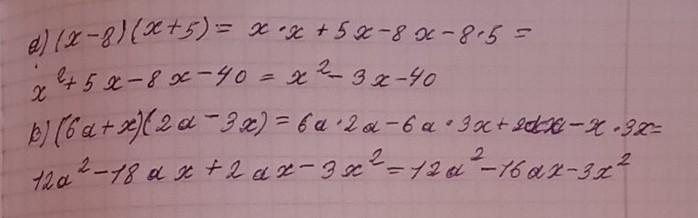 a) (x-8)(x+5) = x·x + 5x - 8x - 8·5 =
x²+5x-8x-40 = x²-3x-40
b) (6a+x)(2a-3x) = 6a·2a-6a·3x+2ax-x·3x=
12a²-18ax+2ax-3x²=12a²-16ax-3x²